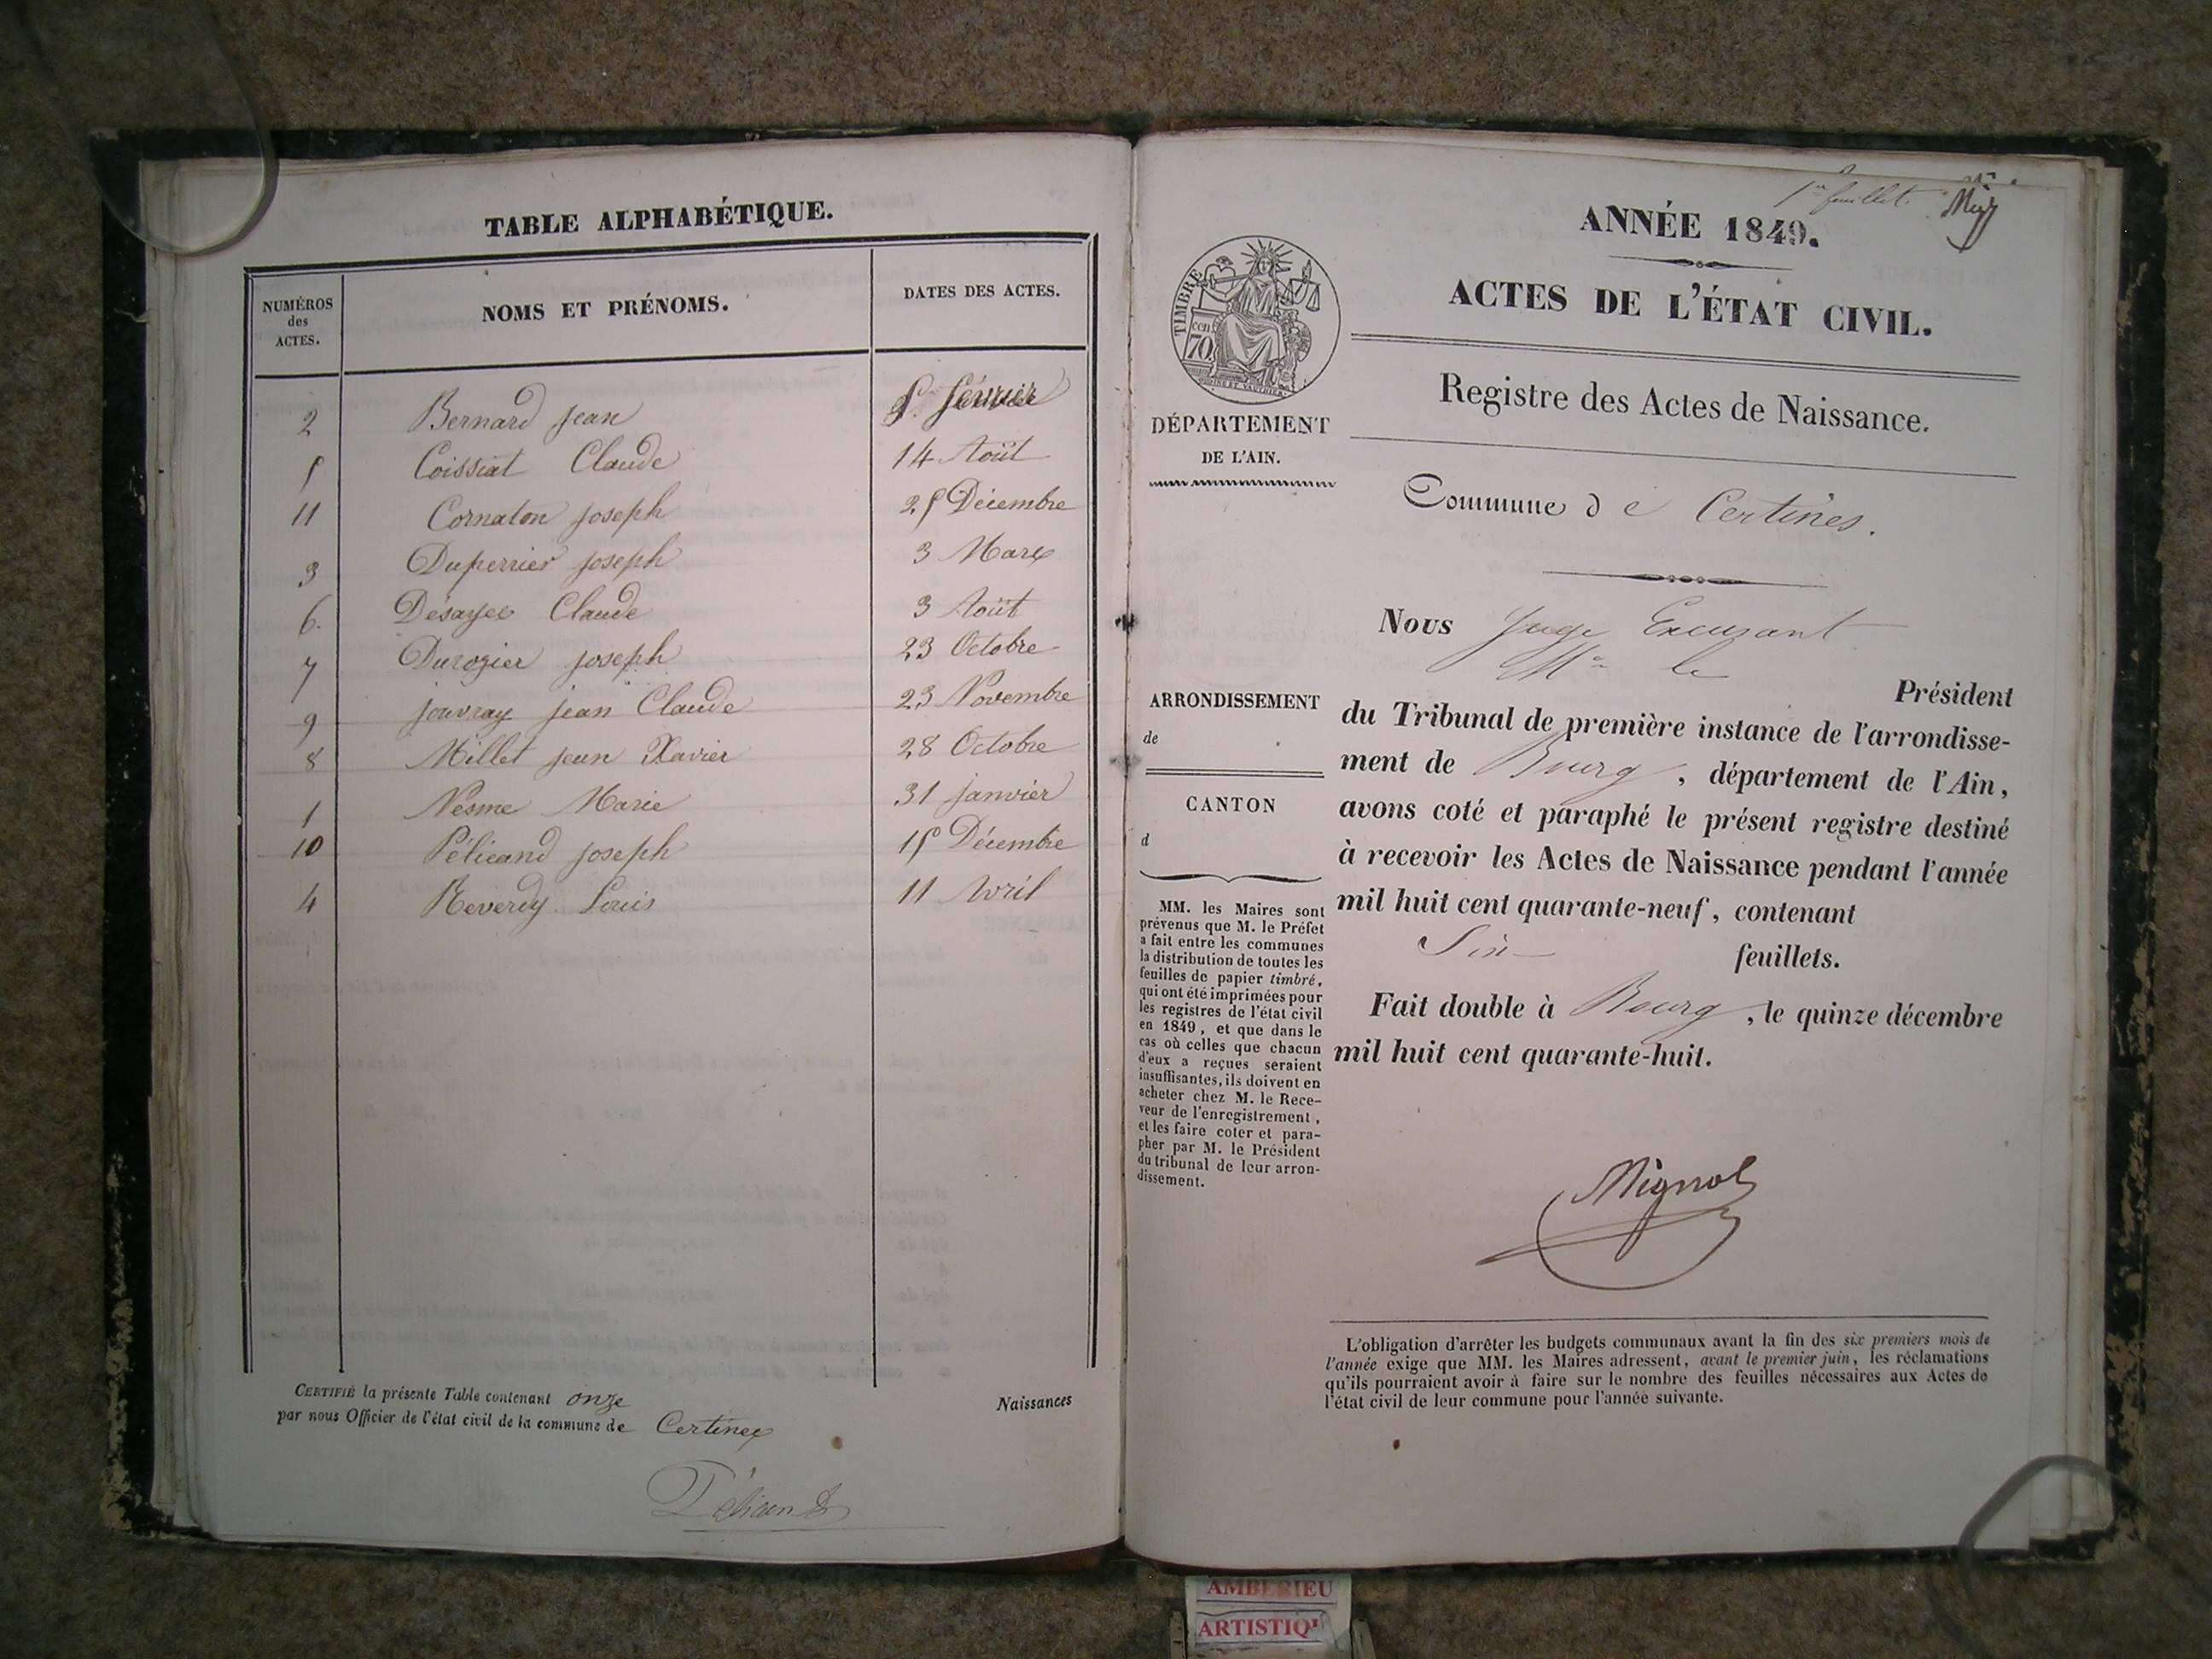 TABLE ALPHABÉTIQUE.
NUMÉROS des ACTES.
NOMS ET PRÉNOMS.
DATES DES ACTES.
2 Bernard jean 5 février
5 Coissiat Claude 14 Août
11 Cornaton joseph 25 Décembre
3 Duperrier joseph 3 Mars
6. Désayes Claude 3 Août
7 Durozier joseph 23 Octobre
9 jouvray jean Claude 23 Novembre
8 Millet jean Xavier 28 Octobre
1 Nesme Marie 31 janvier
10 Pélicand joseph 15 Décembre
4 Reverdy Louis 11 Avril
CERTIFIÉ la présente Table contenant onze Naissances
par nous Officier de l'état civil de la commune de Certines
Pélicand
1er feuillet.
ANNÉE 1849.
ACTES DE L'ÉTAT CIVIL.
TIMBRE
cen
70
Registre des Actes de Naissance.
DÉPARTEMENT
DE L'AIN.
Commune de Certines.
Nous Juge
Mr le
Président
du Tribunal de première instance de l'arrondisse-
ment de Bourg, département de l'Ain,
avons coté et paraphé le présent registre destiné
à recevoir les Actes de Naissance pendant l'année
mil huit cent quarante-neuf, contenant
Six feuillets.
Fait double à Bourg, le quinze décembre
mil huit cent quarante-huit.
Mignot
ARRONDISSEMENT
de
CANTON
d
MM. les Maires sont
prévenus que M. le Préfet
a fait entre les communes
la distribution de toutes les
feuilles de papier timbré,
qui ont été imprimées pour
les registres de l'état civil
en 1849, et que dans le
cas où celles que chacun
d'eux a reçues seraient
insuffisantes, ils doivent en
acheter chez M. le Rece-
veur de l'enregistrement,
et les faire coter et para-
pher par M. le Président
du tribunal de leur arron-
dissement.
L'obligation d'arrêter les budgets communaux avant la fin des six premiers mois de
l'année exige que MM. les Maires adressent, avant le premier juin, les réclamations
qu'ils pourraient avoir à faire sur le nombre des feuilles nécessaires aux Actes de
l'état civil de leur commune pour l'année suivante.
AMBERIEU
ARTISTIQU